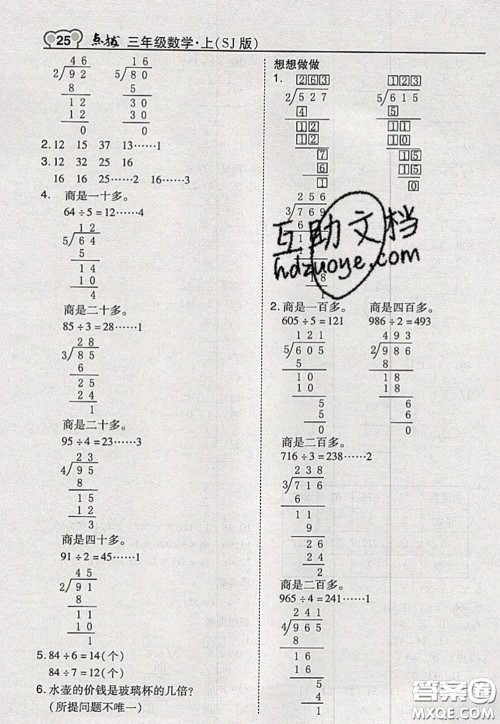 25 点拨 三年级数学·上(SJ版)
4 6
2 9 2
8
1 2
1 2
0
1 6
5 8 0
5
3 0
3 0
0
2. 12 15 37 13……1
3. 16 32 25 16
16 16 25……2 15……1
4. 商是一十多。
64÷5=12……4
1 2
5 6 4
5
1 4
1 0
4
商是二十多。
85÷3=28……1
2 8
3 8 5
6
2 5
2 4
1
商是二十多。
95÷4=23……3
2 3
4 9 5
8
1 5
1 2
3
商是四十多。
91÷2=45……1
4 5
2 9 1
8
1 1
1 0
1
5. 84÷6=14(个)
84÷7=12(个)
6. 水壶的价钱是玻璃杯的几倍?
(所提问题不唯一)
想想做做
1. 2 6 3
2 5 2 7
4
1 2
1 2
7
6
1
1 2 3
5 6 1 5
5
1 1
1 0
1 5
1 5
0
2 5 6
3 7 6 9
1 8
1
互助文档
hdzuoye.com
2. 商是一百多。
605÷5=121
1 2 1
5 6 0 5
5
1 0
1 0
5
5
0
商是四百多。
986÷2=493
4 9 3
2 9 8 6
8
1 8
1 8
6
6
0
商是二百多。
716÷3=238……2
2 3 8
3 7 1 6
6
1 1
9
2 6
2 4
2
商是二百多。
965÷4=241……1
2 4 1
4 9 6 5
8
1 6
1 6
5
4
1
答案圈
MXQE.COM